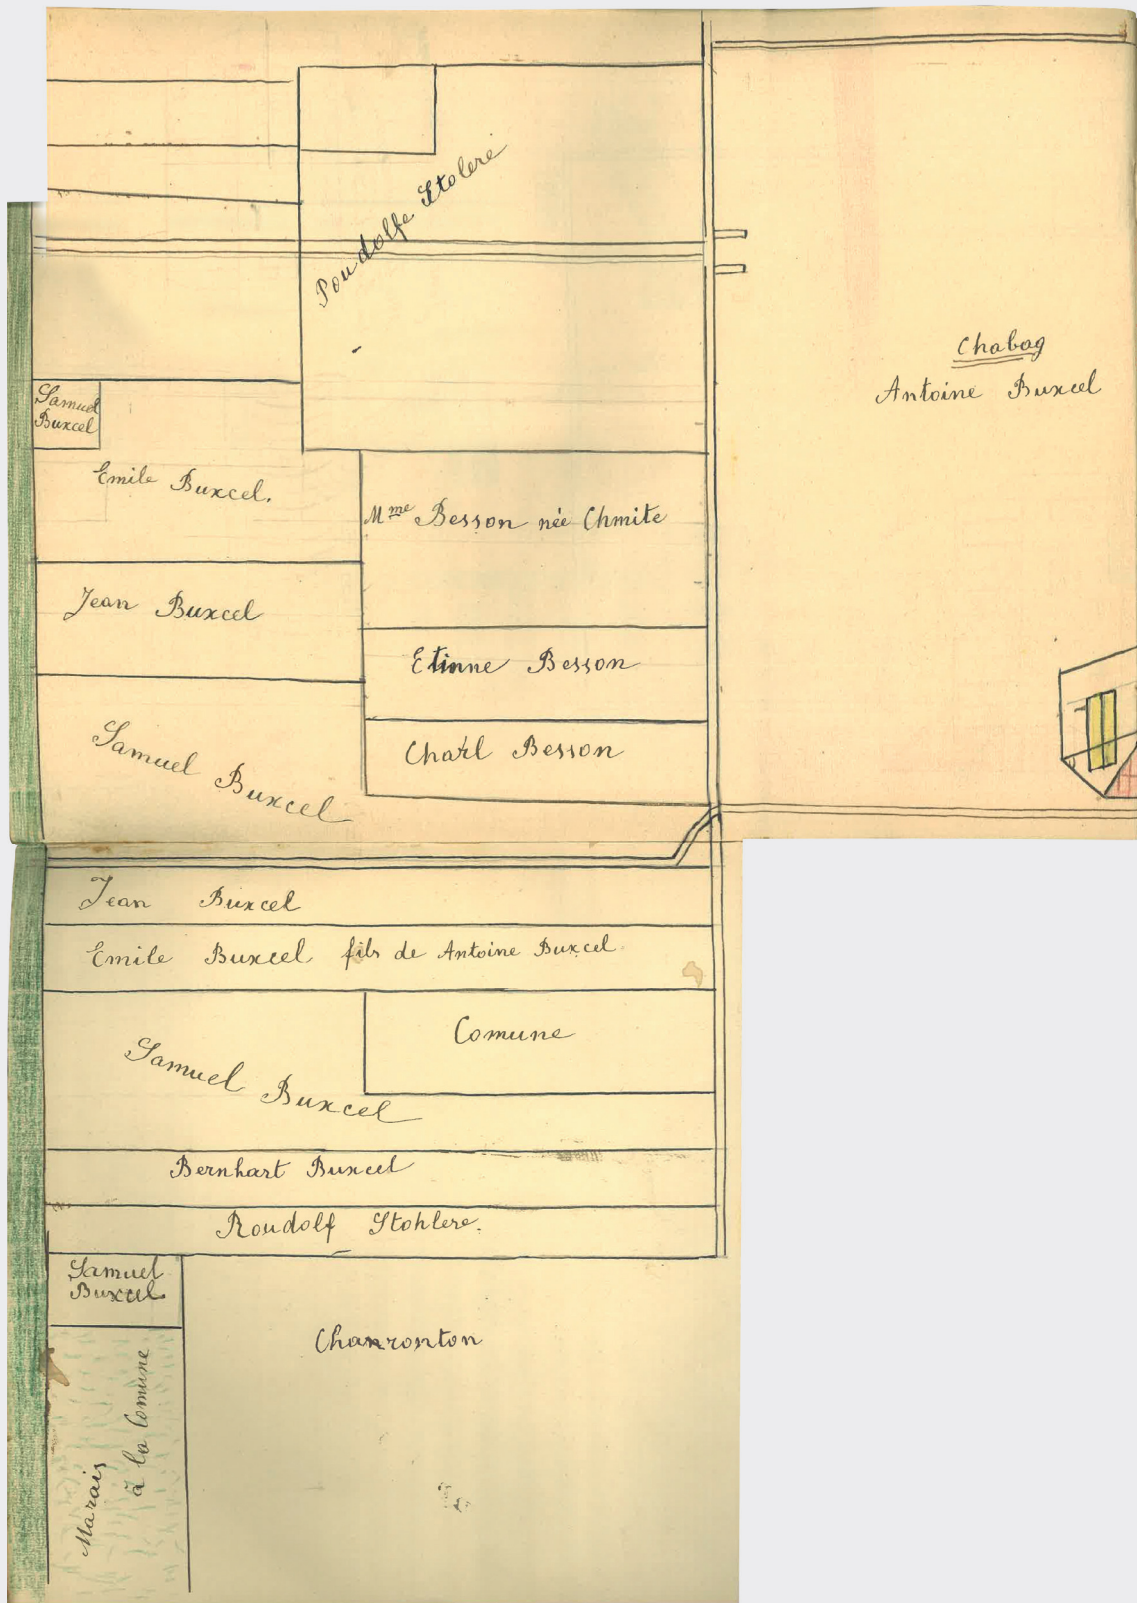 Poudolfe Stolere
Chabag
Antoine Buxcel
Samuel
Buxcel
Emile Buxcel.
Mme Besson née Chmite
Jean Buxcel
Etinne Besson
Charl Besson
Samuel Buxcel
Jean Buxcel
Emile Buxcel fils de Antoine Buxcel
Comune
Samuel Buxcel
Bernhart Buxcel
Roudolf Stohlere.
Samuel
Buxcel
Marais
à la Comune